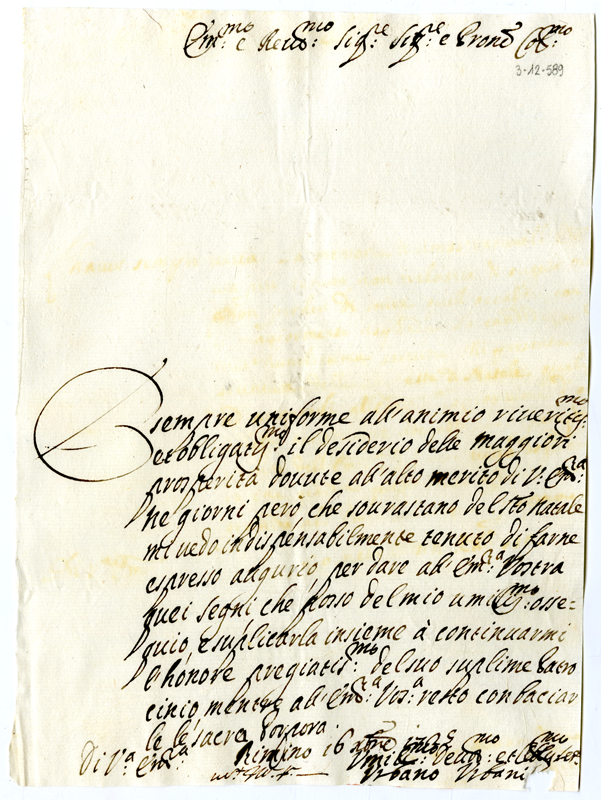 Em.mo e Reu.mo Sig.re Sig.re e Prone Col.mo
3-12-589
È sempre uniforme all'animio riuerit.mo
et obbligatis.mo il desiderio delle maggiori
prosperità douute all'alto merito di V. Em.a
Ne giorni però che sourastano del Sto Natale
mi uedo indispensabilmente tenuto di farne
espresso augurio per dare all'Em.a Vostra
quei segni che posso del mio umilis.mo osse=
quio, e suplicarla insieme à continuarmi
l'honore pregiatis.mo del suo suplime Patro
cinio mentre all'Em.a Vos.a resto con baciar
le le sacre Porpora.
Di V.a Em.za Rimino 16
Umil.mo et
Urbano Urbani